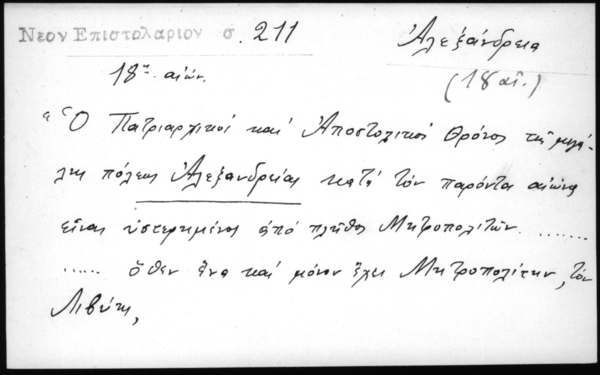 Νεον Επιστολαριον σ. 211
Ἀλεξάνδρεια
18ος αιών.
(18 αι.)
"Ὁ Πατριαρχικός καί Ἀποστολικός Θρόνος τῆς μεγά-
λης πόλεως Ἀλεξανδρείας κατά τόν παρόντα αιώνα
εἶναι ὑστερημένος ἀπό πλῆθος Μητροπολιτῶν. .......
...... ὅθεν ἕνα καί μόνον ἔχει Μητροπολίτην, τόν
Λιβύης,